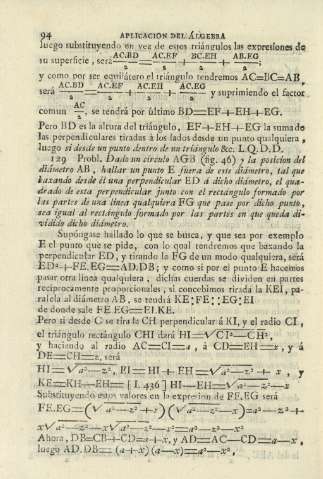 94 APLICACION DEL ÁLGEBRA
luego substituyendo en vez de estos triángulos las expresiones de
su superficie, será AC.BD/2 = AC.EF/2 + BC.EH/2 + AB.EG/2;
y como por ser equilátero el triángulo tendremos AC=BC=AB,
será AC.BD/2 = AC.EF/2 + AC.EH/2 + AC.EG/2 y suprimiendo el factor
comun AC/2, se tendrá por último BD=EF+EH+EG.
Pero BD es la altura del triángulo, EF+EH+EG la suma de
las perpendiculares tiradas á los lados desde un punto qualquiera,
luego si desde un punto dentro de un triángulo &c. L.Q.D.D.
129 Probl. Dado un círculo AGB (fig. 46) y la posicion del
diámetro AB, hallar un punto E fuera de este diámetro, tal que
baxando desde él una perpendicular ED á dicho diámetro, el qua-
drado de esta perpendicular junto con el rectángulo formado por
las partes de una línea qualquiera FG que pase por dicho punto,
sea igual al rectángulo formado por las partes en que queda di-
vidido dicho diámetro.
Supóngase hallado lo que se busca, y que sea por exemplo
E el punto que se pide, con lo qual tendremos que baxando la
perpendicular ED, y tirando la FG de un modo qualquiera, será
ED²+FE.EG=AD.DB; y como si por el punto E hacemos
pasar otra línea qualquiera, dichas cuerdas se dividen en partes
recíprocamente proporcionales, si concebimos tirada la KEI, pa-
ralela al diámetro AB, se tendrá KE:FE::EG:EI
de donde sale FE.EG=EI.KE.
Pero si desde C se tira la CH perpendicular á KI, y el radio CI,
el triángulo rectángulo CHI dará HI=√CI²—CH²,
y haciendo al radio AC=CI=a, á CD=EH=x, y á
DE=CH=z, será
HI=√a²—z², EI=HI+EH=√a²—z²+x, y
KE=KH—EH=[I. 436] HI—EH=√a²—z²—x
Substituyendo estos valores en la expresion de FE.EG será
FE.EG=(√a²—z²+x)(√a²—z²—x)=a²—z²+
x√a²—z²—x√a²—z²—x²=a²—z²—x²
Ahora, DB=CB+CD=a+x, y AD=AC—CD=a—x,
luego AD.DB=(a+x)(a—x)=a²—x²,